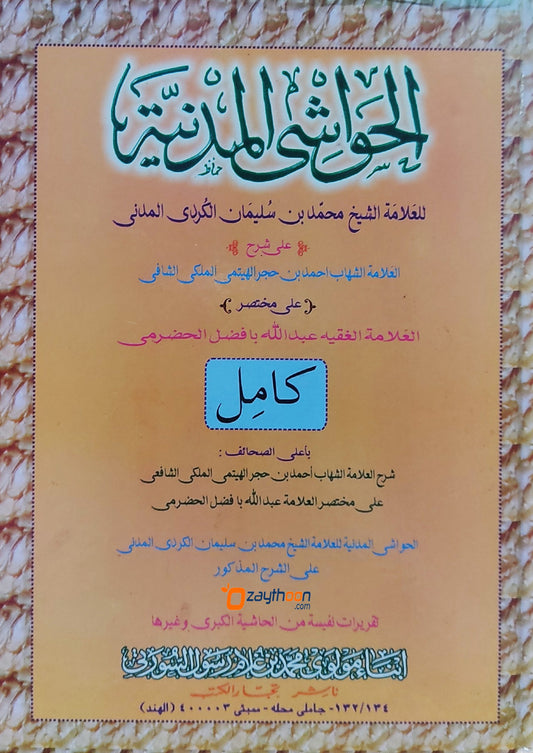 الحواشى المدنية
حافظ
للعلامة الشيخ محمد بن سليمان الكردى المدنى
على شرح
العلامة الشهاب احمد بن حجر الهيتمى الملكى الشافى
على مختصر
العلامة الفقيه عبدالله بافضل الحضرمى
كامل
بأعلى الصحائف :
شرح العلامة الشهاب أحمد بن حجر الهيتمى الملكى الشافعى
على مختصر العلامة عبدالله بافضل الحضرمى
الحواشى المدنية للعلامة الشيخ محمد بن سليمان الكردى المدنى
على الشرح المذكور
zaythoon
.com
تقريرات نفيسة من الحاشية الكبرى وغيرها
ابناء مولوى محمد بن غلام رسول السورتى
ناشر تجار الكتب
١٣٢/١٣٤- جاملى محله - ممبئى ٤٠٠٠٠٣ (الهند)